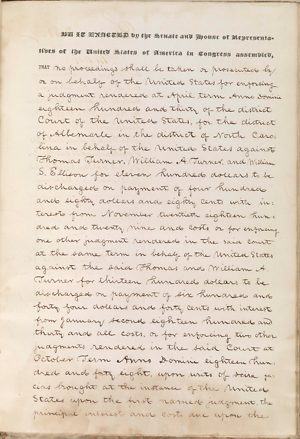 BE IT ENACTED by the Senate and House of Representa-
tives of the United States of America in Congress assembled,
THAT no proceedings shall be taken or prosecuted by
or on behalf of the United States for enforcing
a judgment rendered at April term Anno Domini
eighteen hundred and thirty of the district
Court of the United States, for the district
of Albemarle in the district of North Caro-
lina in behalf of the United States against
Thomas Turner, William A. Turner, and William
S. Ellison for eleven hundred dollars to be
discharged on payment of four hundred
and eighty dollars and eighty cents with in-
terest from November twentieth eighteen hun-
dred and twenty nine and costs or for enforcing
one other judgment rendered in the said court
at the same term in behalf of the United States
against the said Thomas and William A.
Turner for thirteen hundred dollars to be
discharged on payment of six hundred and
forty four dollars and forty cents with interest
from January second, eighteen hundred and
thirty and all costs or for enforcing two other
judgments rendered in the said Court at
October Term Anno Domini eighteen hun-
dred and forty eight, upon writs of scire fa-
cias brought at the instance of the United
States upon the first named judgment the
principal interest and costs due upon the